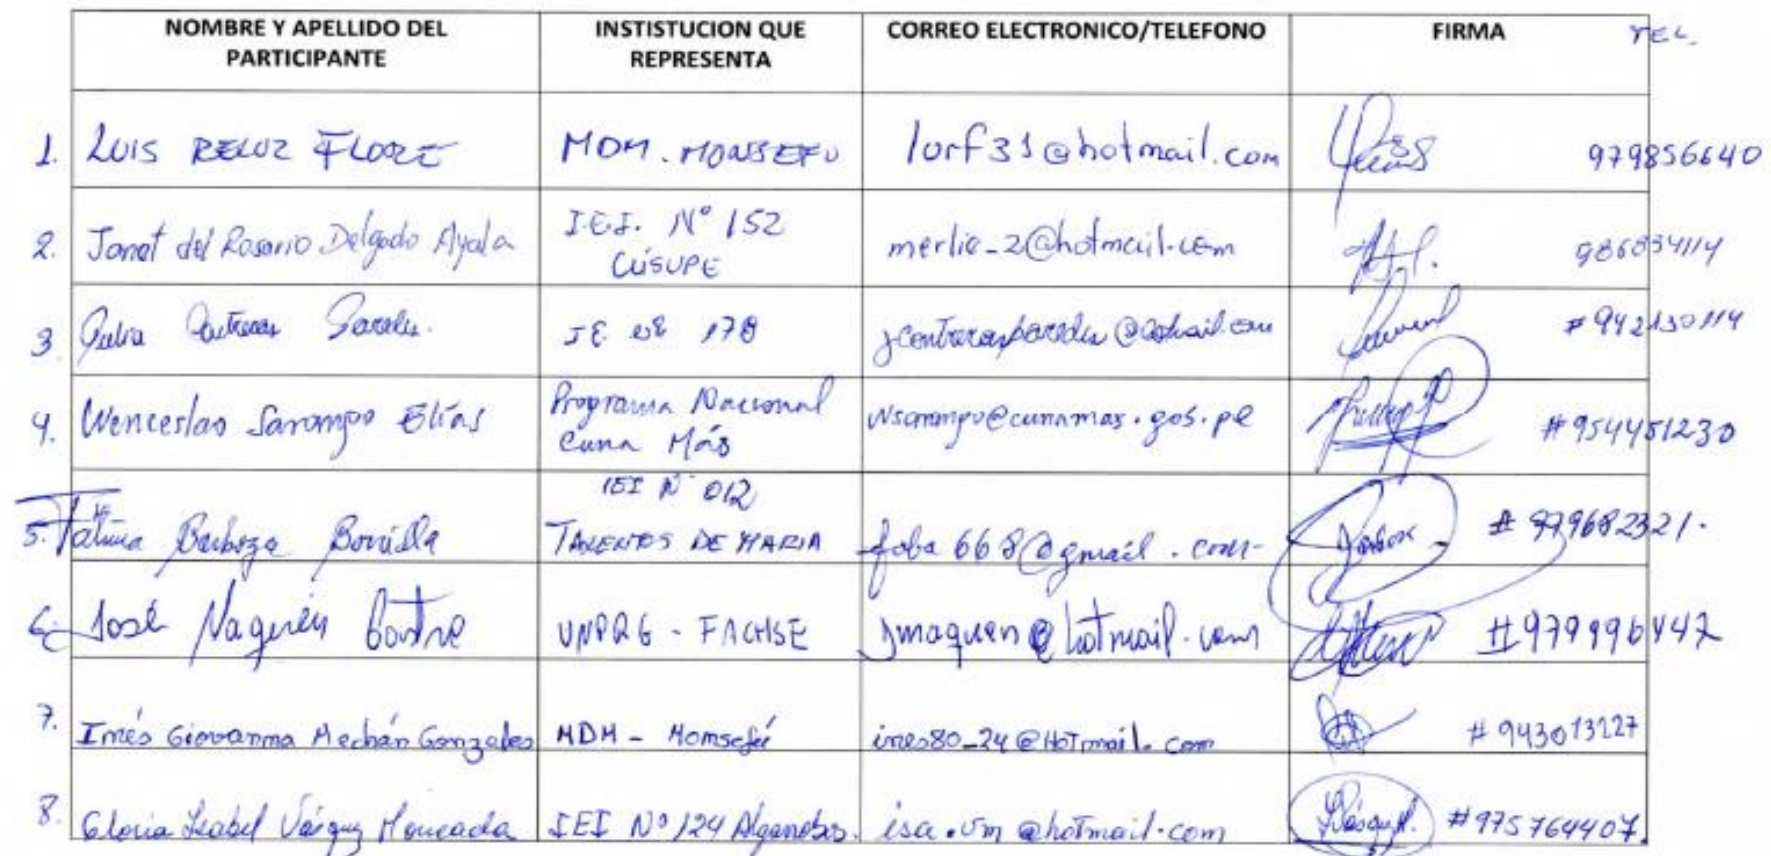 NOMBRE Y APELLIDO DEL PARTICIPANTE INSTISTUCION QUE REPRESENTA CORREO ELECTRONICO/TELEFONO FIRMA TEL.
1. LUIS RELUZ FLORE MDM. MONSEFU lurf31@hotmail.com 979856640
2. Janet del Rosario Delgado Ayala I.E.I. N° 152 CUSUPE merlie_2@hotmail.com
3. Julia Contreras # 942130114
4. Wenceslao Sarango Elías Programa Nacional Cuna Más #954451230
5. Fátima Barboza Bonilla IEI N° 012 TALENTOS DE MARIA faba668@gmail.com # 979682321.
6. José Maquén UNPRG - FACHSE jmaquen@hotmail.com #979996442
7. Inés Giovanna Mechán Gonzales MDM - Monsefú ines80_24@HoTmail.com # 943013227
8. Gloria Isabel Vásquez Moncada IEI N° 124 isa.vm@hoTmail.com #975764407.